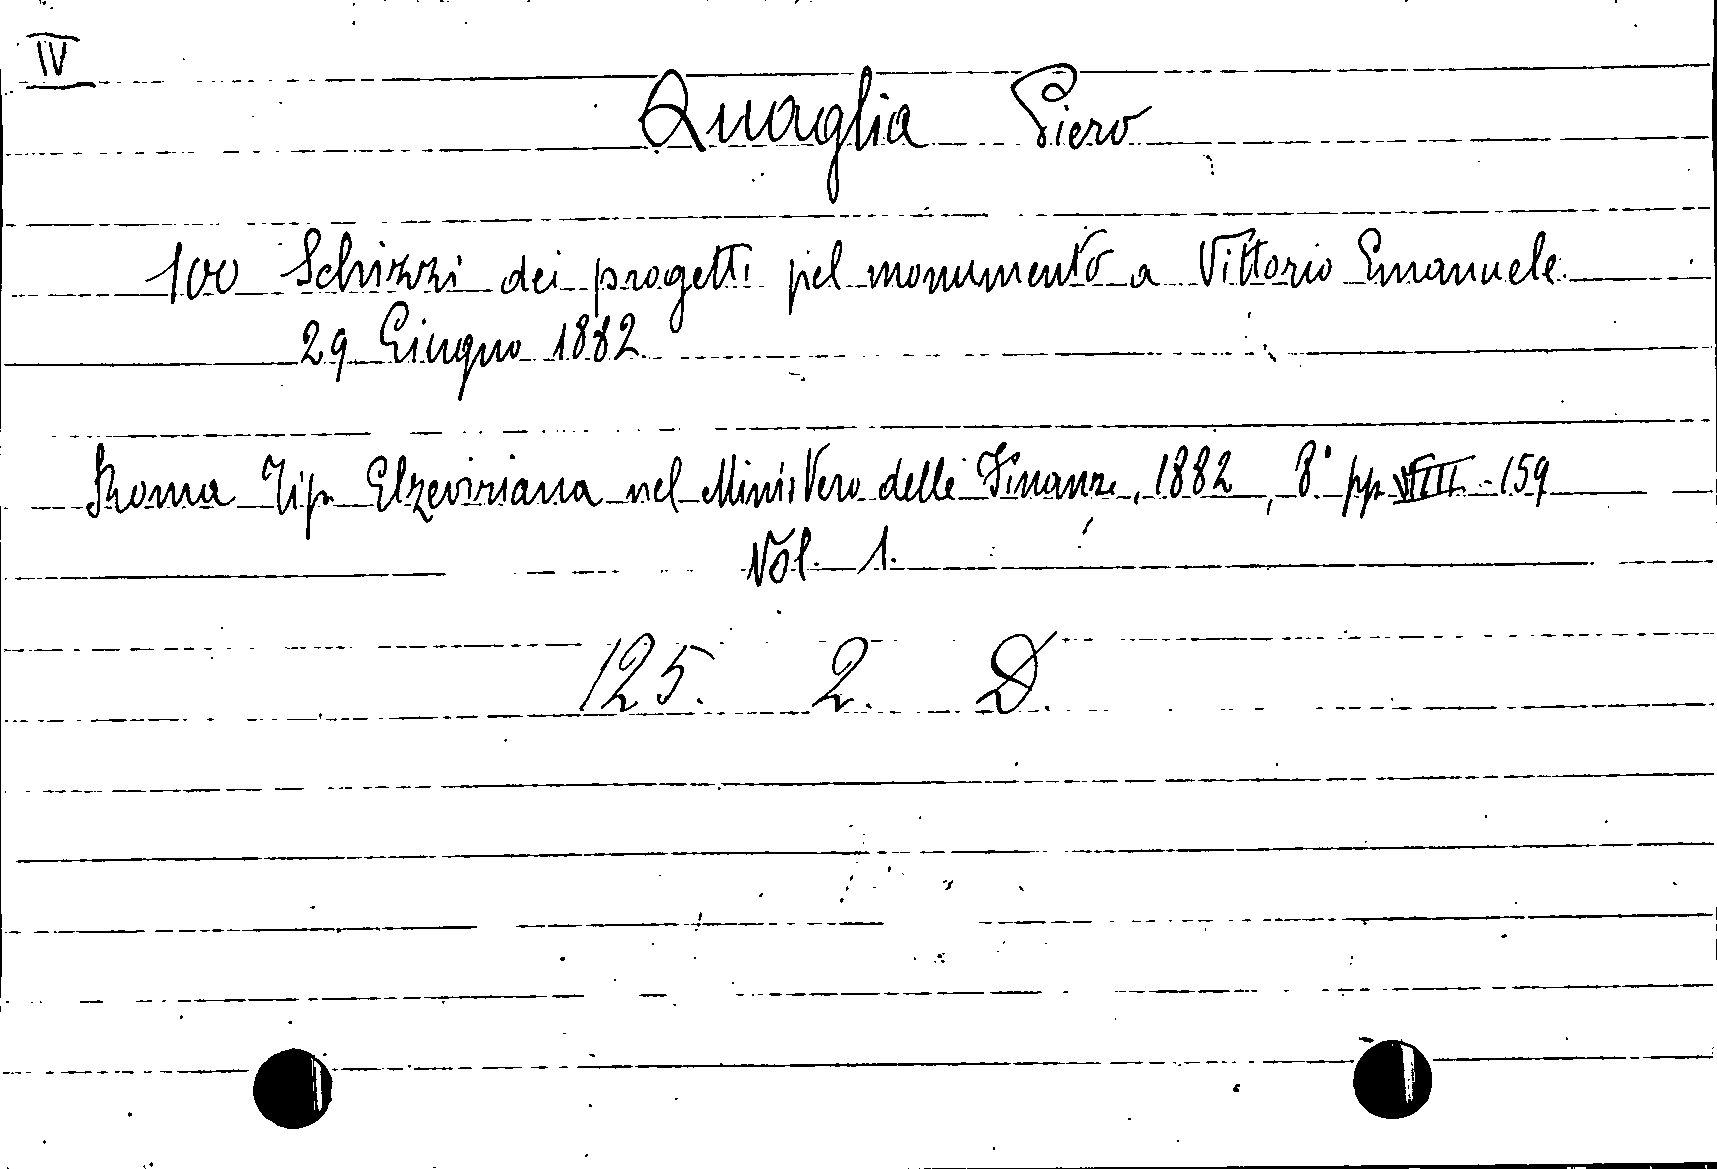 IV
Quaglia Piero
100 Schizzi dei progetti pel monumento a Vittorio Emanuele
29 Giugno 1882
Roma Tip. Elzeviriana nel Ministero delle Finanze, 1882, 8° pp. VIII-159
Vol. 1.
125. 2. D.